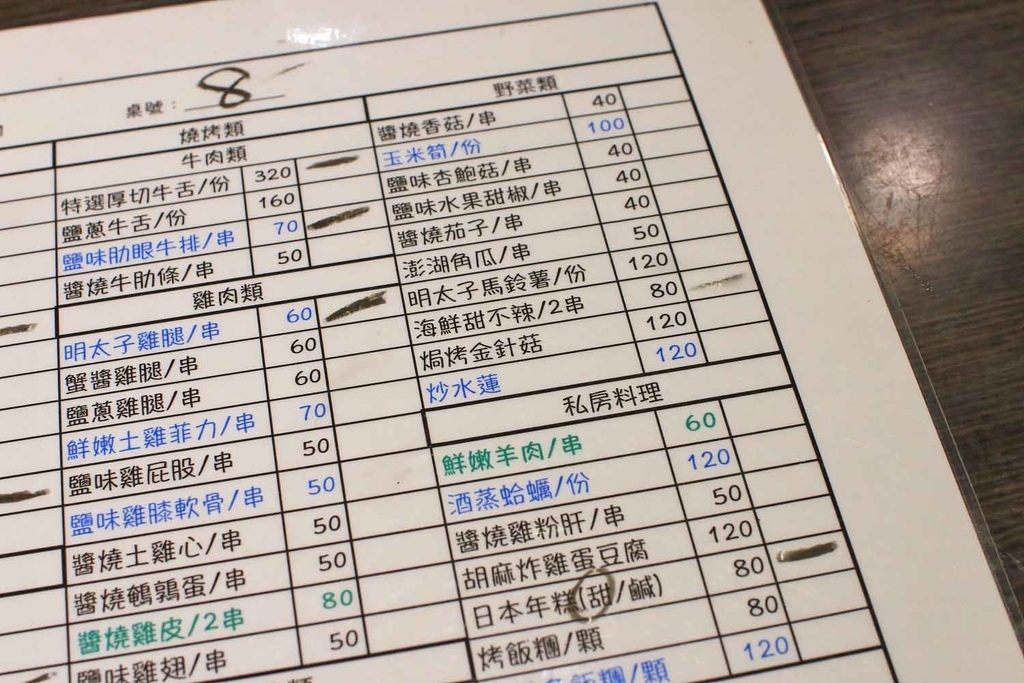 桌號：8
燒烤類
牛肉類
特選厚切牛舌/份 320
鹽蔥牛舌/份 160
鹽味肋眼牛排/串 70
醬燒牛肋條/串 50
雞肉類
明太子雞腿/串 60
蟹醬雞腿/串 60
鹽蔥雞腿/串 60
鮮嫩土雞菲力/串 70
鹽味雞屁股/串 50
鹽味雞膝軟骨/串 50
醬燒土雞心/串 50
醬燒鵪鶉蛋/串 50
醬燒雞皮/2串 80
鹽味雞翅/串 50
野菜類
醬燒香菇/串 40
玉米筍/份 100
鹽味杏鮑菇/串 40
鹽味水果甜椒/串 40
醬燒茄子/串 40
澎湖角瓜/串 50
明太子馬鈴薯/份 120
海鮮甜不辣/2串 80
焗烤金針菇 120
炒水蓮 120
私房料理
鮮嫩羊肉/串 60
酒蒸蛤蠣/份 120
醬燒雞粉肝/串 50
胡麻炸雞蛋豆腐 120
日本年糕(甜/鹹) 80
烤飯糰/顆 80
飯糰/顆 120